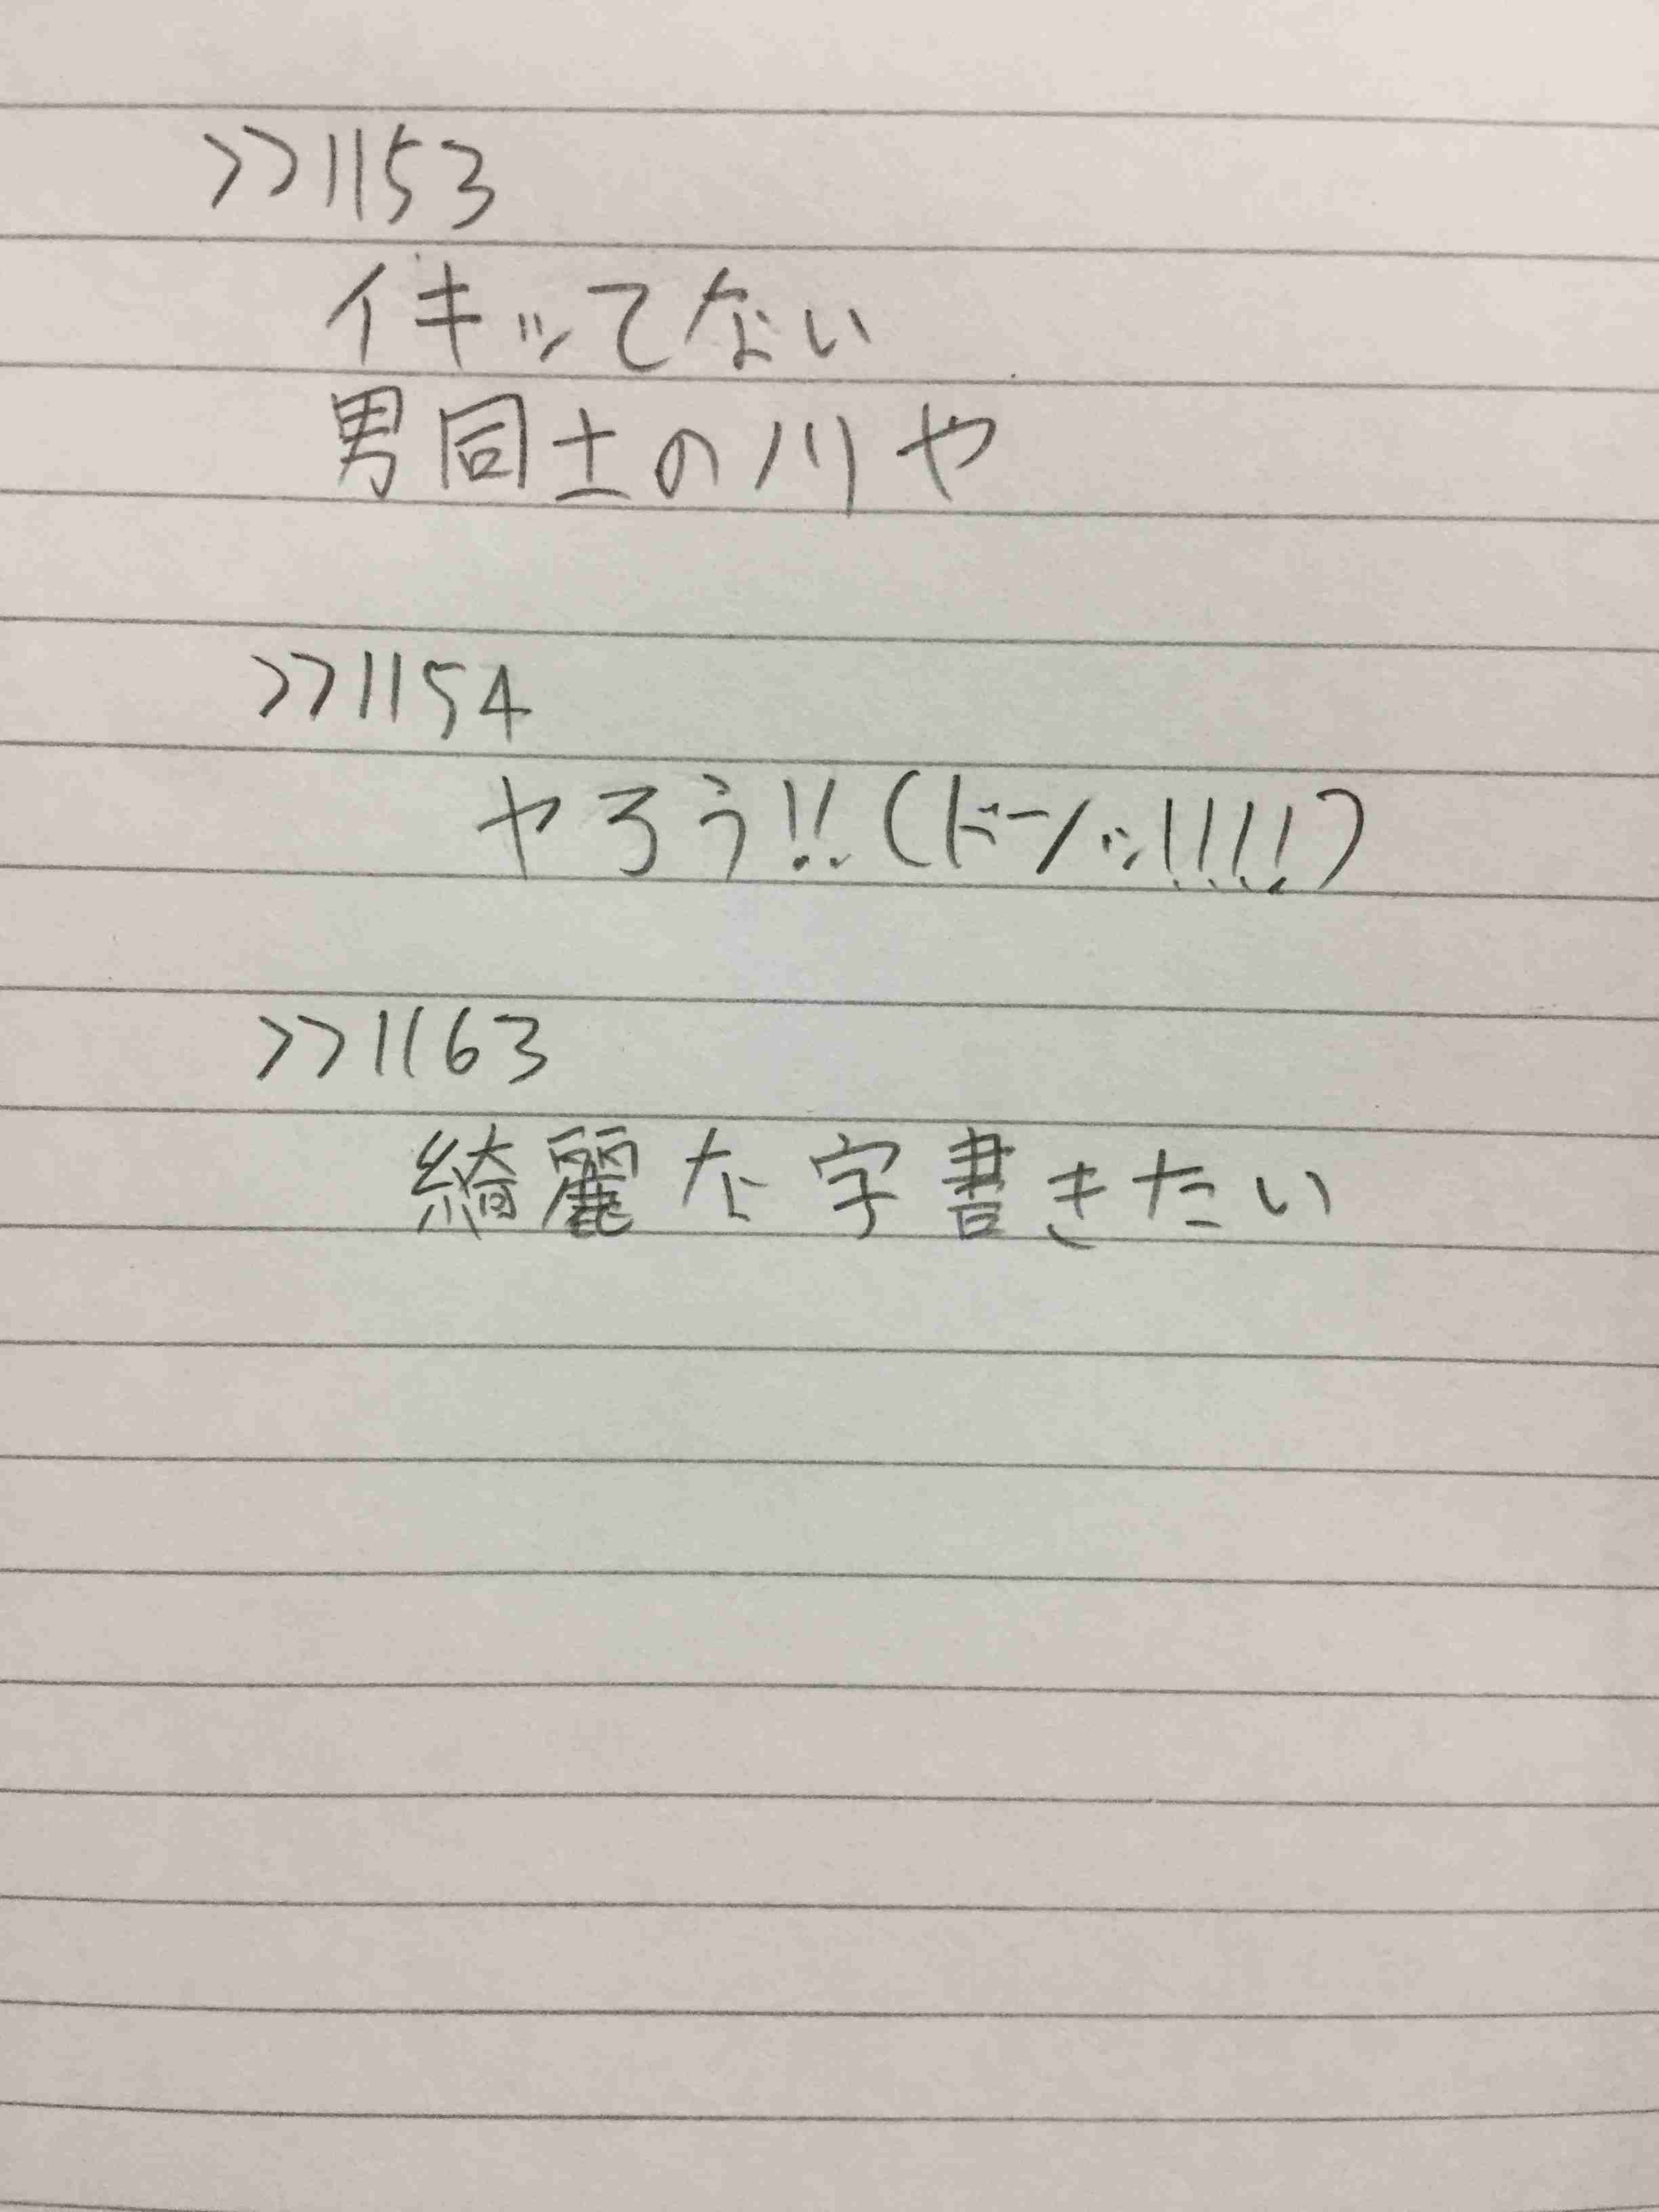 >>1153
イキッてない
男同士のノリや
>>1154
ヤろう!!(ドーンッ!!!!)
>>1163
綺麗な字書きたい